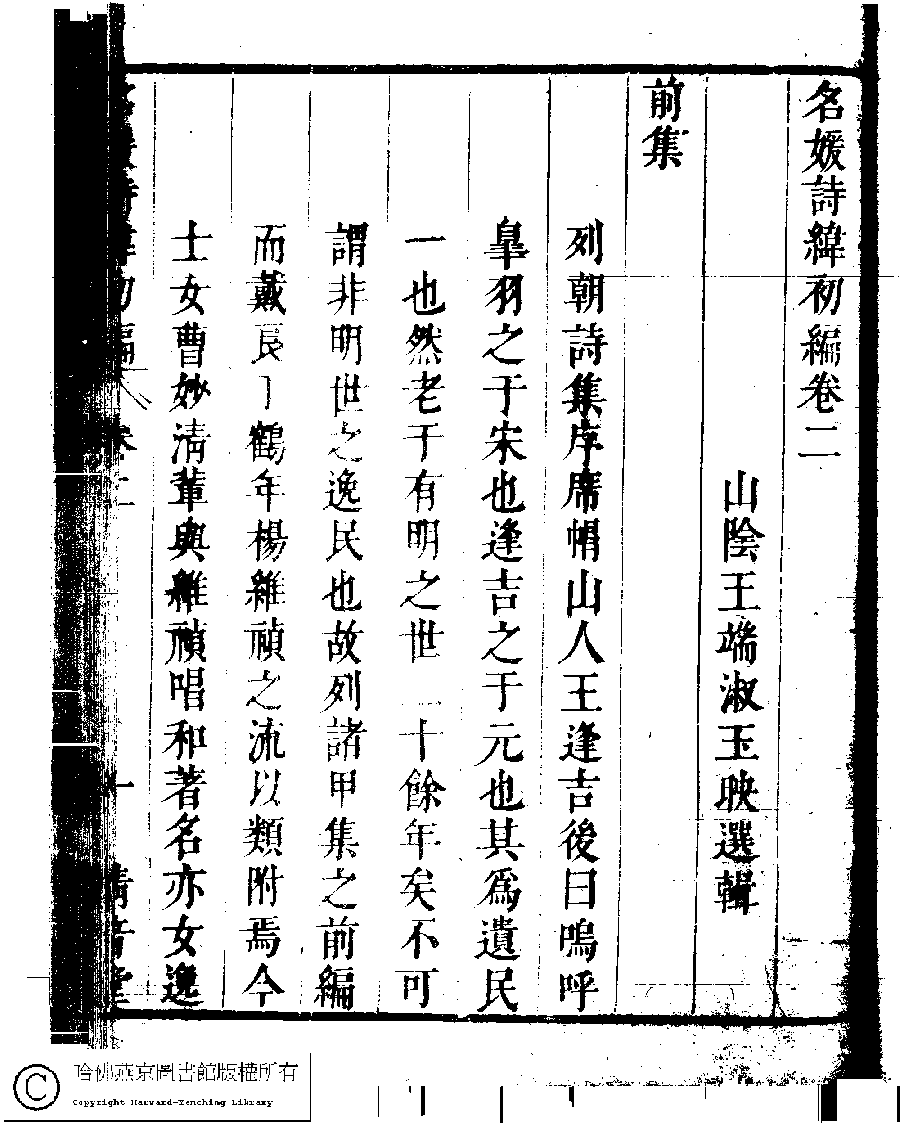 名媛詩緯初編卷二
山陰王端淑玉映選輯
前集
列朝詩集序席帽山人王逢吉後曰嗚呼
皐羽之于宋也逢吉之于元也其爲遺民
一也然老于有明之世二十餘年矣不可
謂非明世之逸民也故列諸甲集之前編
而戴良丁鶴年楊維禎之流以類附焉今
士女曹妙清輩與維禎唱和著名亦女逸
名媛詩緯初編 卷二 一 清音堂
哈佛燕京圖書館版權所有
Copyright Harvard-Yenching Library